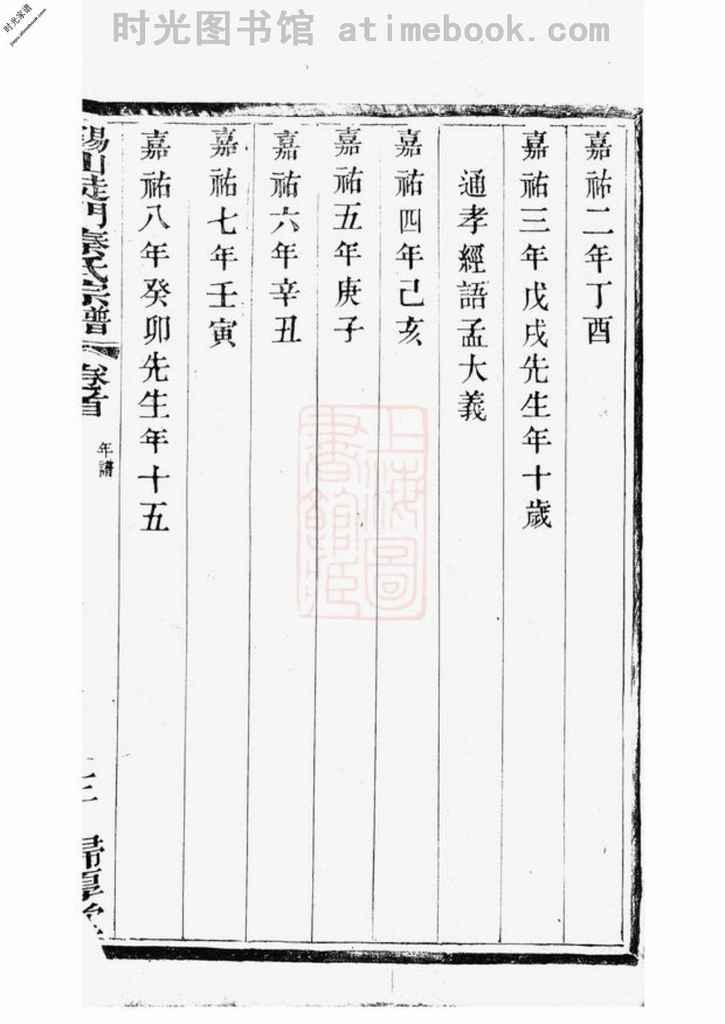 时光图书馆 atimebook.com
时光家谱
嘉祐二年丁酉
嘉祐三年戊戌先生年十歲
通孝經語孟大義
嘉祐四年己亥
嘉祐五年庚子
嘉祐六年辛丑
嘉祐七年壬寅
嘉祐八年癸卯先生年十五
錫山陡門秦氏宗譜
卷首
年譜
歸厚堂
上海圖書館藏